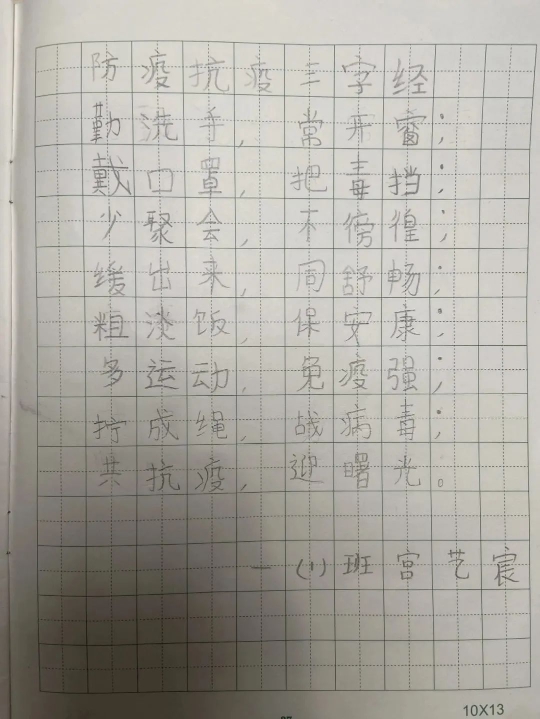 防疫抗疫三字经
勤洗手,常开窗;
戴口罩,把毒挡;
少聚会,不傍徨;
缓出来,同舒畅;
粗淡饭,保安康;
多运动,免疫强;
拧成绳,战病毒;
共抗疫,迎曙光。
一(1)班宫艺宸
10X13